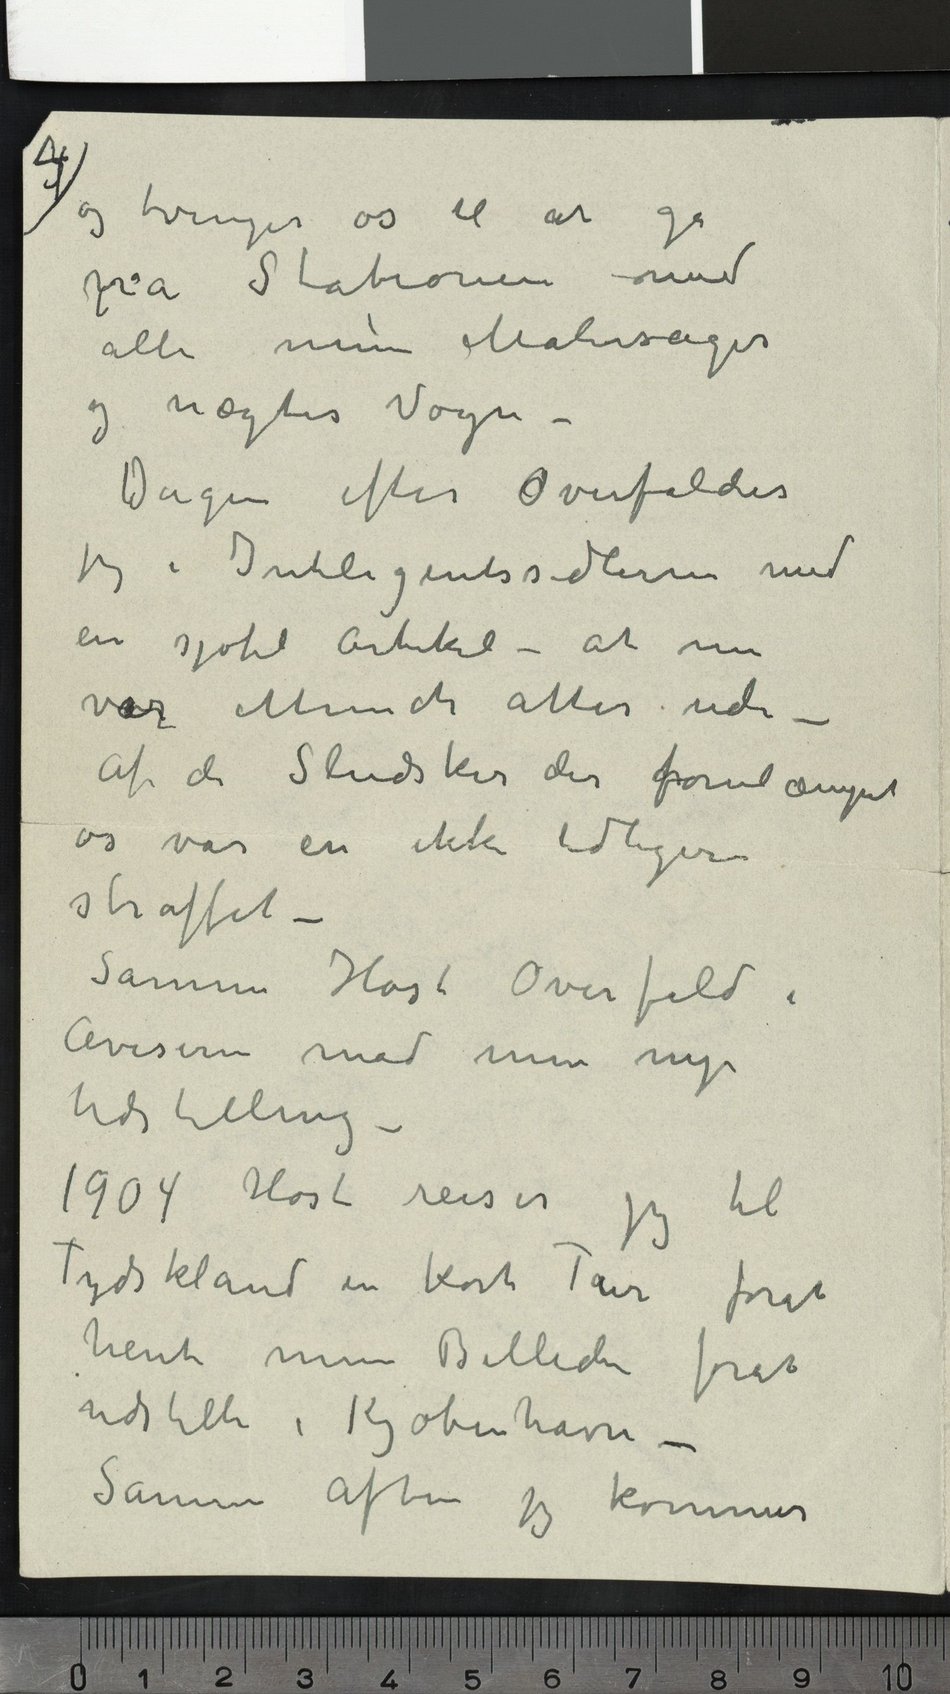 4)
og tvinges os til at gå
fra Stationen med
alle mine Malersager
og nægtes Vogn –
Dagen efter Overfaldes
jeg i Intelligentssedlerne med
en sjofel Artikel – at nu
var Munch atter ude –
Af de Sludsker der
os var en ikke tidligere
straffet –
Samme Høst Overfald i
Aviserne mod min nye
Udstilling –
1904 Høst reiser jeg til
Tydskland en kort Tur forat
hente mine Billeder forat
udstille i Kjøbenhavn –
Samme Aften jeg kommer
0 1 2 3 4 5 6 7 8 9 10